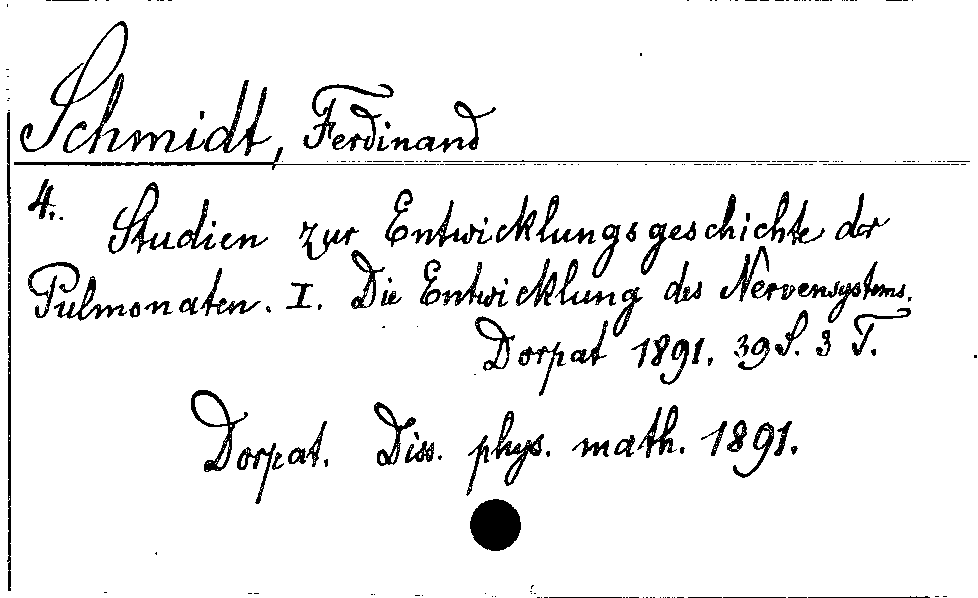 Schmidt, Ferdinand
4. Studien zur Entwicklungsgeschichte der
Pulmonaten. I. Die Entwicklung des Nervensystems.
Dorpat 1891. 39 S. 3 T.
Dorpat. Diss. phys. math. 1891.